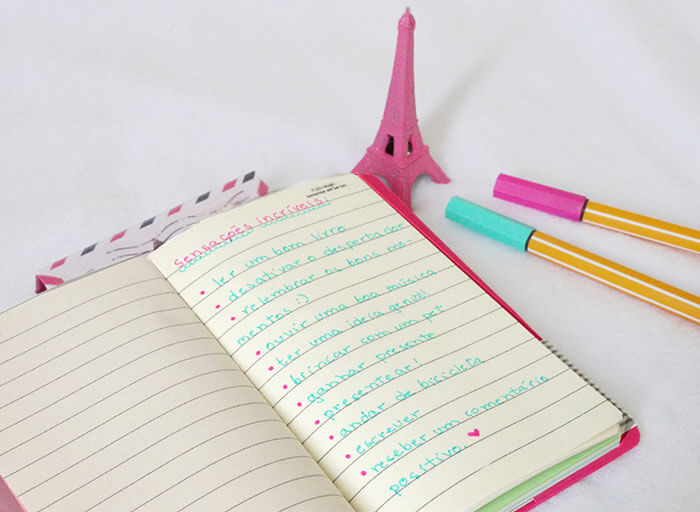 sensações incríveis:
• ler um bom livro
• desativar o despertador
• relembrar os bons mo-
mentos :)
• ouvir uma boa música
• ter uma ideia genial!
• brincar com um pet
• ganhar presente
• presentear!
• andar de bicicleta
• escrever
• receber um comentário
positivo. ♥